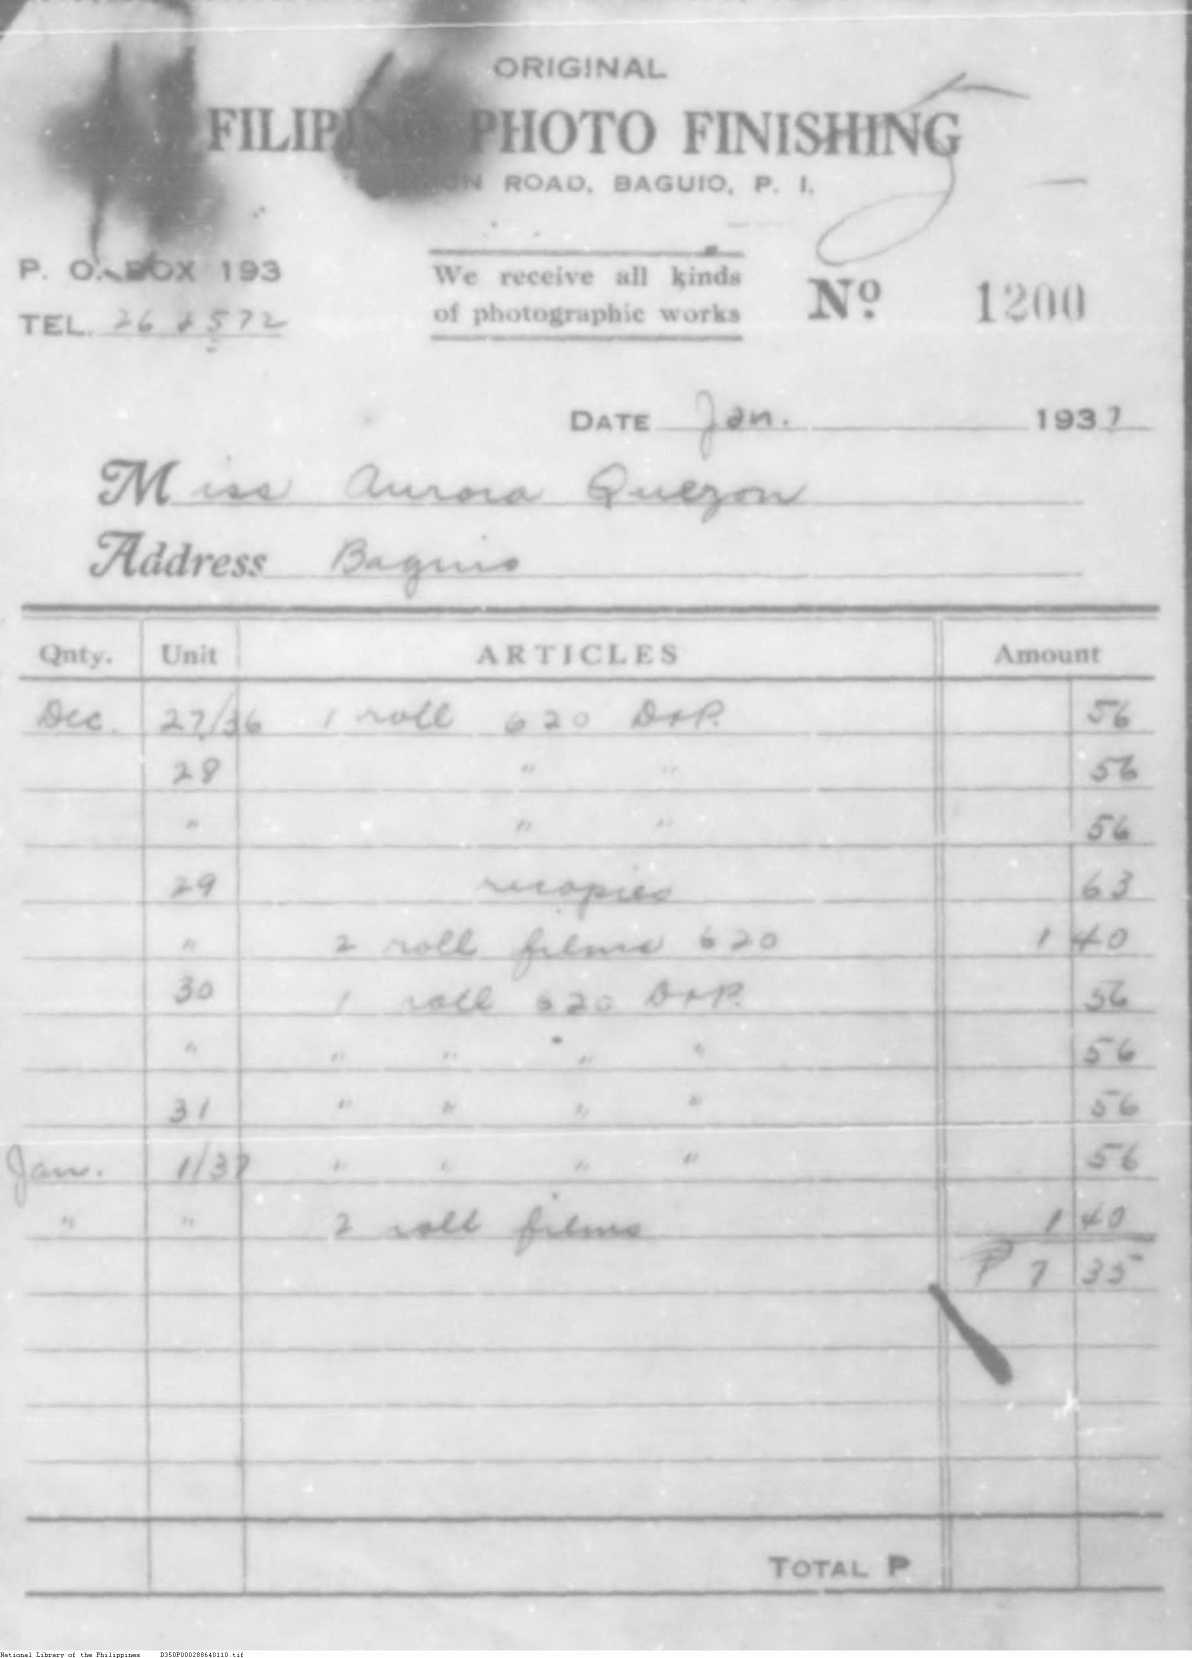 ORIGINAL
FILIPINO PHOTO FINISHING
ROAD, BAGUIO, P. I.
P. O. BOX 193
TEL. 26 & 572
We receive all kinds
of photographic works
Nº 1200
DATE Jan. 1937
Miss Aurora Quezon
Address Baguio
Qnty. Unit ARTICLES Amount
Dec. 27/36 1 roll 620 D&P. 56
28 " " 56
" " " 56
29 recopies 63
" 2 roll films 620 1 40
30 1 roll 620 D&P. 56
" " " " " 56
31 " " " " 56
Jan. 1/37 " " " " 56
" " 2 roll films 1 40
₱ 7 35
TOTAL ₱
National Library of the Philippines D350P000288640110.tif